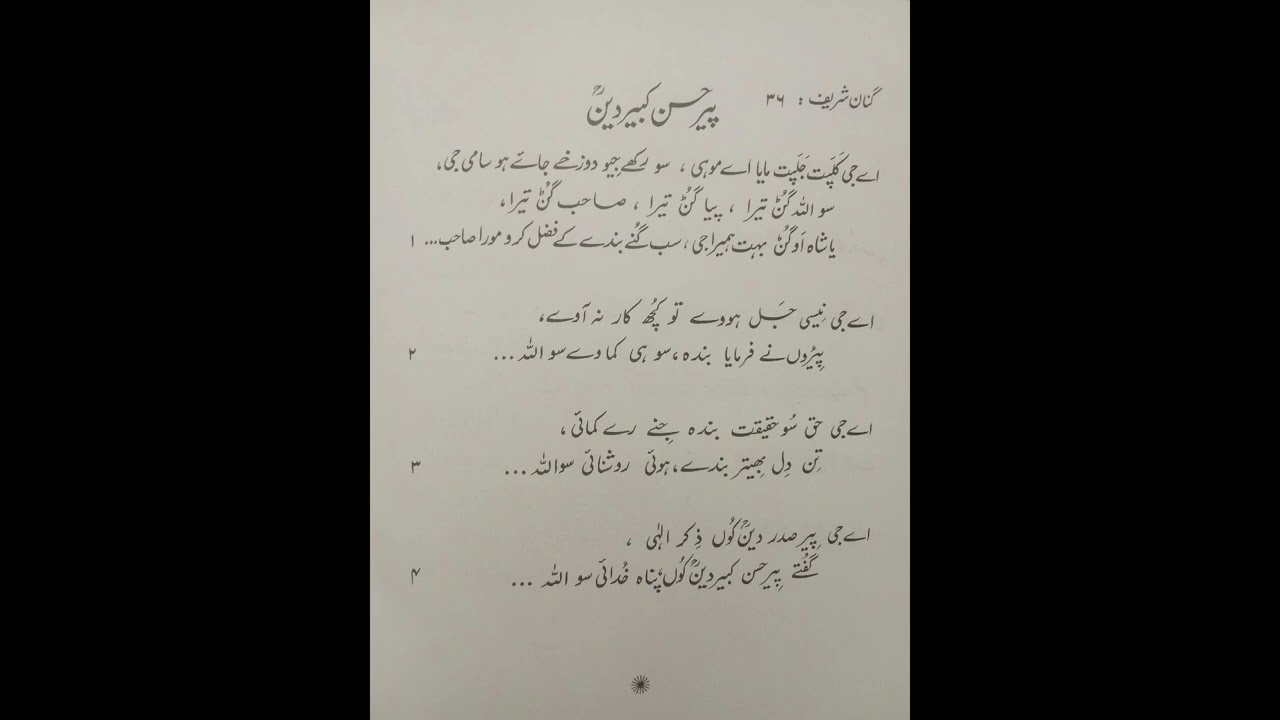 گنان شریف : ۳۶
پیر حسن کبیر دینؒ
اے جی کَلَپت جَلَپت مایا اے موہی ، سو رکھے جِیو دوزخے جائے ہو سامی جی،
سو اللہ گُنْ تیرا ، پیا گُنْ تیرا ، صاحب گُنْ تیرا،
یا شاہ اَوگُنْ بہت ہمیرا جی ، سب گُنے بندے کے فضل کرو مورا صاحب... ۱
اے جی نِیسی جَل ہووے تو کُچھ کار نہ آوے،
پِیرُوں نے فرمایا بندہ، سو ہی کماوے سو اللہ ... ۲
اے جی حق سُو حقیقت بندہ جِنے رے کمائی ،
تِن دِل بھِیتر بندے، ہوئی روشنائی سو اللہ ... ۳
اے جی پِیر صدر دینؒ کُوں ذِکر الہٰی ،
گُفتے پِیر حسن کبیر دینؒ کُوں پناہ خُدائی سو اللہ ... ۴